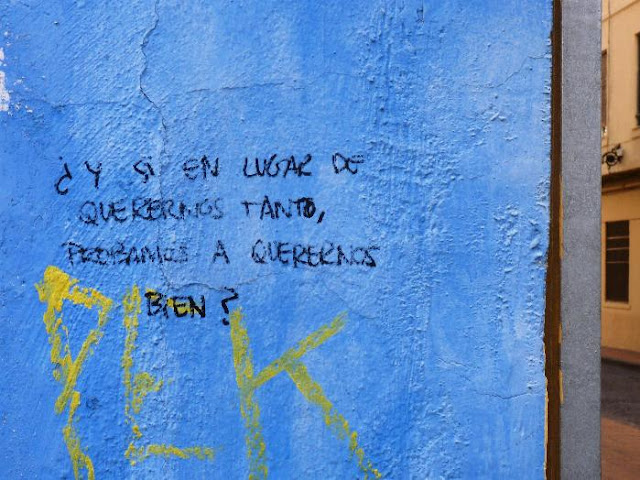 ¿Y SI EN LUGAR DE
QUERERNOS TANTO,
PROBAMOS A QUERERNOS
BIEN?
PEK